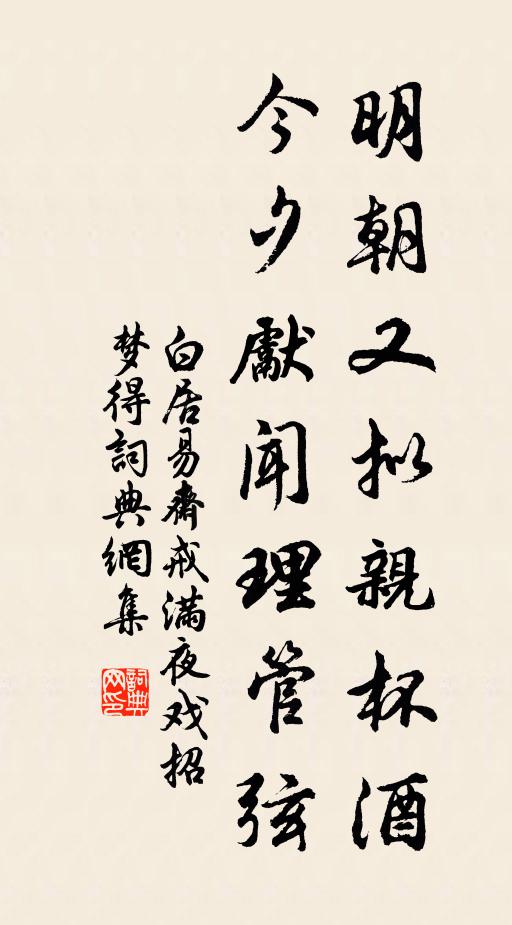 明朝又拟親杯酒
今夕獻聞理管弦
白居易齋戒滿夜戏招
梦得詞典網集
詞典网印